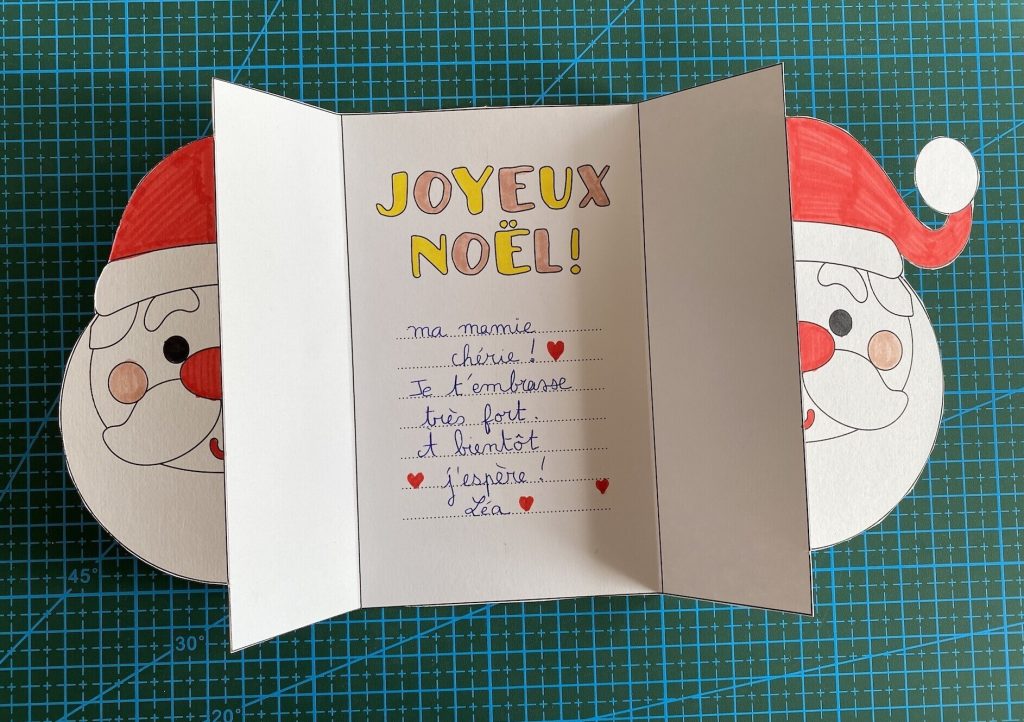 JOYEUX
NOËL!
ma mamie
chérie !
Je t'embrasse
très fort.
A bientôt
j'espère !
Léa
45°
30°
20°